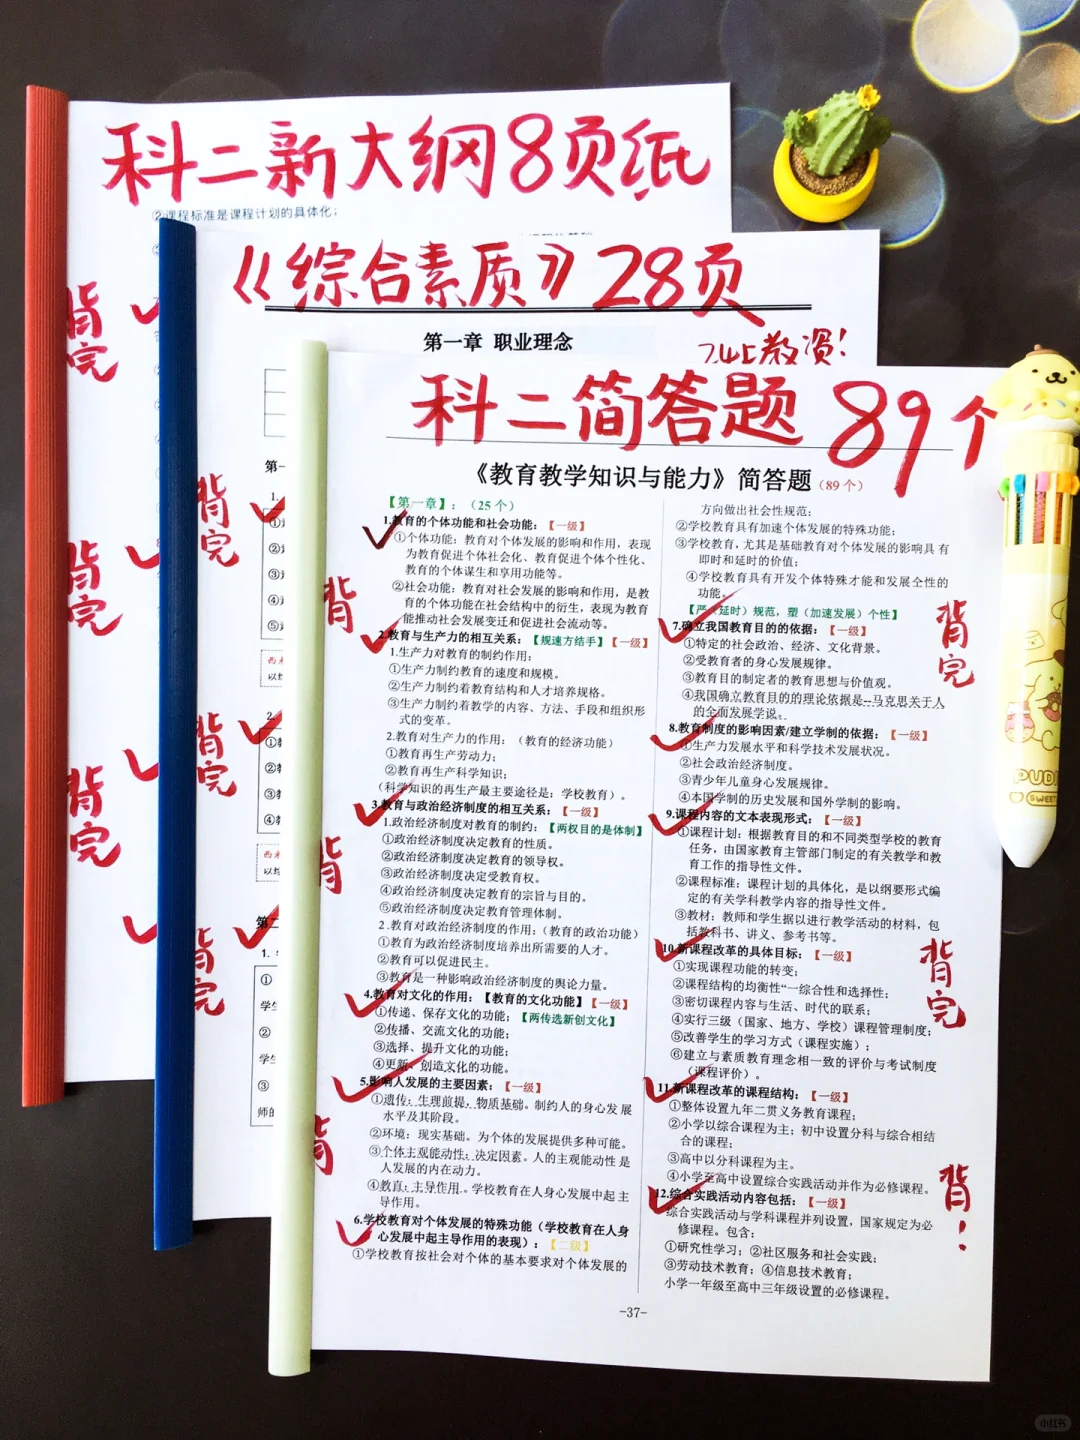 科二新大纲8页纸
②课程标准是课程计划的具体化；
背完
背完
背完
《综合素质》28页
第一章 职业理念
教资！
背完
背完
背完
科二简答题 89个
《教育教学知识与能力》简答题（89个）
【第一章】：（25个）
1.教育的个体功能和社会功能：【一级】
①个体功能：教育对个体发展的影响和作用，表现
为教育促进个体社会化、教育促进个体个性化、
教育的个体谋生和享用功能等。
②社会功能：教育对社会发展的影响和作用，是教
育的个体功能在社会结构中的衍生，表现为教育
能推动社会发展变迁和促进社会流动等。
2.教育与生产力的相互关系：【规速方结手】【一级】
1.生产力对教育的制约作用：
①生产力制约教育的速度和规模。
②生产力制约着教育结构和人才培养规格。
③生产力制约着教学的内容、方法、手段和组织形
式的变革。
2.教育对生产力的作用：（教育的经济功能）
①教育再生产劳动力；
②教育再生产科学知识；
（科学知识的再生产最主要途径是：学校教育）。
3.教育与政治经济制度的相互关系：【一级】
1.政治经济制度对教育的制约：【两权目的是体制】
①政治经济制度决定教育的性质。
②政治经济制度决定教育的领导权。
③政治经济制度决定受教育权。
④政治经济制度决定教育的宗旨与目的。
⑤政治经济制度决定教育管理体制。
2.教育对政治经济制度的作用：（教育的政治功能）
①教育为政治经济制度培养出所需要的人才。
②教育可以促进民主。
③教育是一种影响政治经济制度的舆论力量。
4.教育对文化的作用：【教育的文化功能】【一级】
①传递、保存文化的功能；【两传选新创文化】
②传播、交流文化的功能；
③选择、提升文化的功能；
④更新、创造文化的功能。
5.影响人发展的主要因素：【一级】
①遗传：生理前提，物质基础。制约人的身心发展
水平及其阶段。
②环境：现实基础。为个体的发展提供多种可能。
③个体主观能动性：决定因素。人的主观能动性是
人发展的内在动力。
④教育：主导作用。学校教育在人身心发展中起主
导作用。
6.学校教育对个体发展的特殊功能（学校教育在人身
心发展中起主导作用的表现）：【二级】
①学校教育按社会对个体的基本要求对个体发展的
方向做出社会性规范；
②学校教育具有加速个体发展的特殊功能；
③学校教育，尤其是基础教育对个体发展的影响具有
即时和延时的价值；
④学校教育具有开发个体特殊才能和发展个性的
功能。
【严（延时）规范，塑（加速发展）个性】
7.确立我国教育目的的依据：【一级】
①特定的社会政治、经济、文化背景。
②受教育者的身心发展规律。
③教育目的制定者的教育思想与价值观。
④我国确立教育目的的理论依据是--马克思关于人
的全面发展学说。
8.教育制度的影响因素/建立学制的依据：【一级】
①生产力发展水平和科学技术发展状况。
②社会政治经济制度。
③青少年儿童身心发展规律。
④本国学制的历史发展和国外学制的影响。
9.课程内容的文本表现形式：【一级】
①课程计划：根据教育目的和不同类型学校的教育
任务，由国家教育主管部门制定的有关教学和教
育工作的指导性文件。
②课程标准：课程计划的具体化，是以纲要形式编
定的有关学科教学内容的指导性文件。
③教材：教师和学生据以进行教学活动的材料，包
括教科书、讲义、参考书等。
10.新课程改革的具体目标：【一级】
①实现课程功能的转变；
②课程结构的均衡性“一综合性和选择性；
③密切课程内容与生活、时代的联系；
④实行三级（国家、地方、学校）课程管理制度；
⑤改善学生的学习方式（课程实施）；
⑥建立与素质教育理念相一致的评价与考试制度
（课程评价）。
11.新课程改革的课程结构：【一级】
①整体设置九年二贯义务教育课程；
②小学以综合课程为主；初中设置分科与综合相结
合的课程；
③高中以分科课程为主。
④小学至高中设置综合实践活动并作为必修课程。
12.综合实践活动内容包括：【一级】
综合实践活动与学科课程并列设置，国家规定为必
修课程。包含：
①研究性学习；②社区服务和社会实践；
③劳动技术教育；④信息技术教育；
小学一年级至高中三年级设置的必修课程。
背
背
背
背完
背完
背！
-37-
PUDI
SWEET
小红书